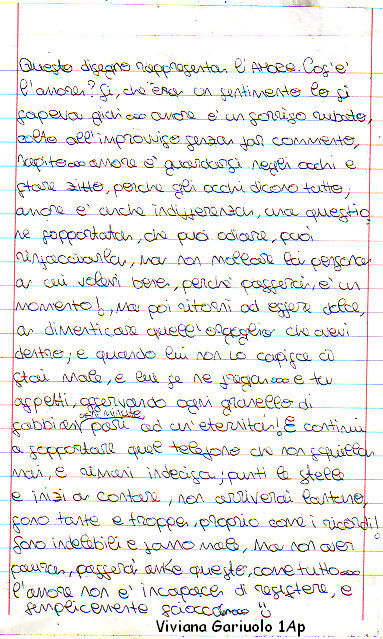 Questo disegno rappresenta l'Amore. Cos'è
l'amore? Si, che era un sentimento lo si
sapeva già.. amore è un sorriso rubato,
colto all'improvviso senza far commento,
rapito... amore è guardarsi negli occhi e
stare zitto, perche gli occhi dicono tutto;
amore è anche indifferenza, una questio
ne sopportata, che puoi odiare, puoi
rinfacciarla, ma non mollare la persona
a cui volevi bene, perché passerà, è un
momento!, Ma poi ritorni ad essere dolce,
a dimenticare quell'orgoglio che avevi
dentro, e quando lui non lo capisce ci
stai male, e lui se ne frega... e tu
aspetti, osservando ogni granello di
sabbia ogni minuto pari ad un'eternità! E continui
a sopportare quel telefono che non squilla
mai, e rimani indecisa, punti le stelle
e inizi a contare, non arriverai lontano,
sono tante e troppe, proprio come i ricordi!
Sono indelebili e fanno male, Ma non aver
paura, passerà anke questo, come tutto...
l'amore non è incapace di resistere, e
semplicemente sciocco...
Viviana Gariuolo 1Ap